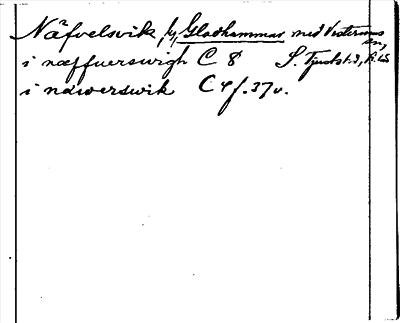 Näfvelsvik, by, Gladhammar med Västervik
sn,
i næffuerswigh C 8 S. Tjusts hd, K. L.
i nawerswik C 4 f. 37 v.